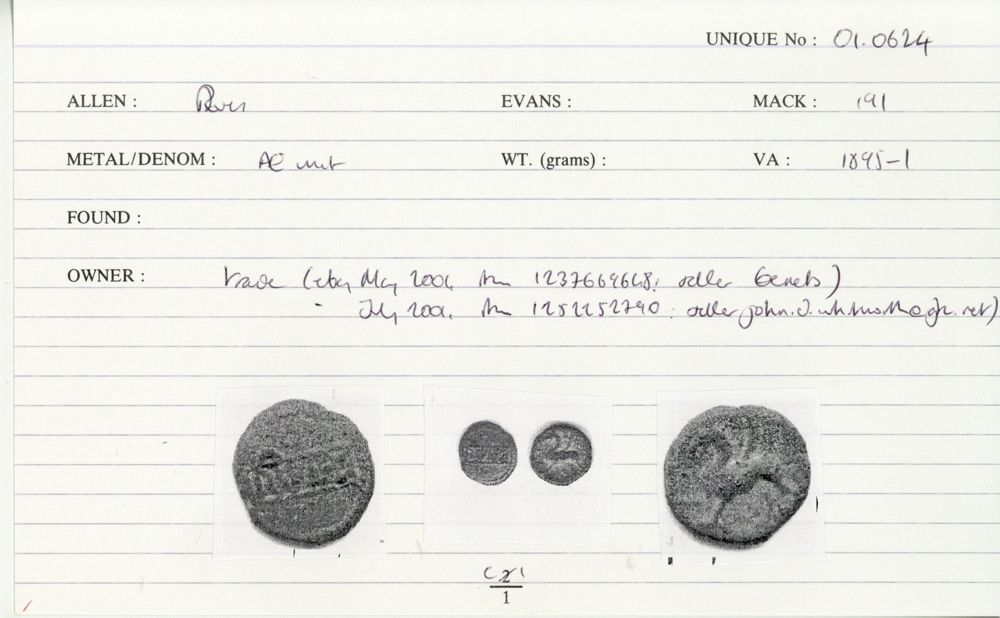 UNIQUE No : 01.0624
ALLEN : EVANS : MACK : 191
METAL/DENOM : AE unit WT. (grams) : VA : 1895-1
FOUND :
OWNER : trade (ebay May 2001, item 1237669648: seller )
" July 2001, item 1252252790: seller
1